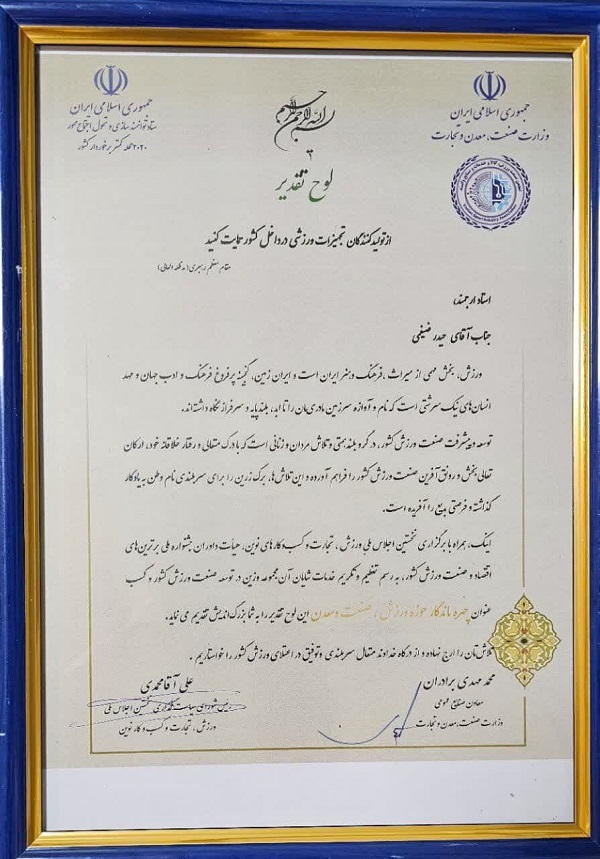 جمهوری اسلامی ایران
ستاد توانمندسازی و تحول اجتماع محور
۲۰۲۰ محله کمتر برخوردار کشور
بسم الله الرحمن الرحیم
جمهوری اسلامی ایران
وزارت صنعت، معدن و تجارت
لوح تقدیر
از تولیدکنندگان تجهیزات ورزشی در داخل کشور حمایت کنید
مقام معظم رهبری (مدظله العالی)
استاد ارجمند
جناب آقای حیدر ضیغمی
ورزش، بخش مهمی از میراث، فرهنگ و هنر ایران است و ایران زمین، گنجینه پرفروغ فرهنگ و ادب جهان و مهد
انسان‌های نیک سرشتی است که نام و آوازه سرزمین مادری‌مان را تا ابد، بلندپایه و سرفراز نگاه داشته‌اند.
توسعه و پیشرفت صنعت ورزش کشور، در گرو بلندهمتی و تلاش مردان و زنانی است که با درک متعالی و رفتار خلاقانه خود، ارکان
تعالی بخش و رونق آفرین صنعت ورزش کشور را فراهم آورده و این تلاش‌ها، برگ زرین را برای سربلندی نام وطن به یادگار
گذاشته و فرصتی بدیع را آفریده است.
اینک، همراه با برگزاری نخستین اجلاس ملی ورزش، تجارت و کسب و کارهای نوین، هیأت داوران جشنواره ملی برترین‌های
اقتصاد و صنعت ورزش کشور، به رسم تعظیم و تکریم خدمات شایان آن مجموعه وزین در توسعه صنعت ورزش کشور و کسب
عنوان چهره ماندگار حوزه ورزش، صنعت و معدن این لوح تقدیر را به شما بزرگ اندیش تقدیم می نماید.
تلاش‌تان را ارج نهاده و از درگاه خداوند متعال سربلندی و توفیق در اعتلای ورزش کشور را خواستاریم.
محمد مهدی برادران
معاون صنایع عمومی
وزارت صنعت، معدن و تجارت
علی آقامحمدی
رئیس شورای سیاست گذاری نخستین اجلاس ملی
ورزش، تجارت و کسب و کار نوین